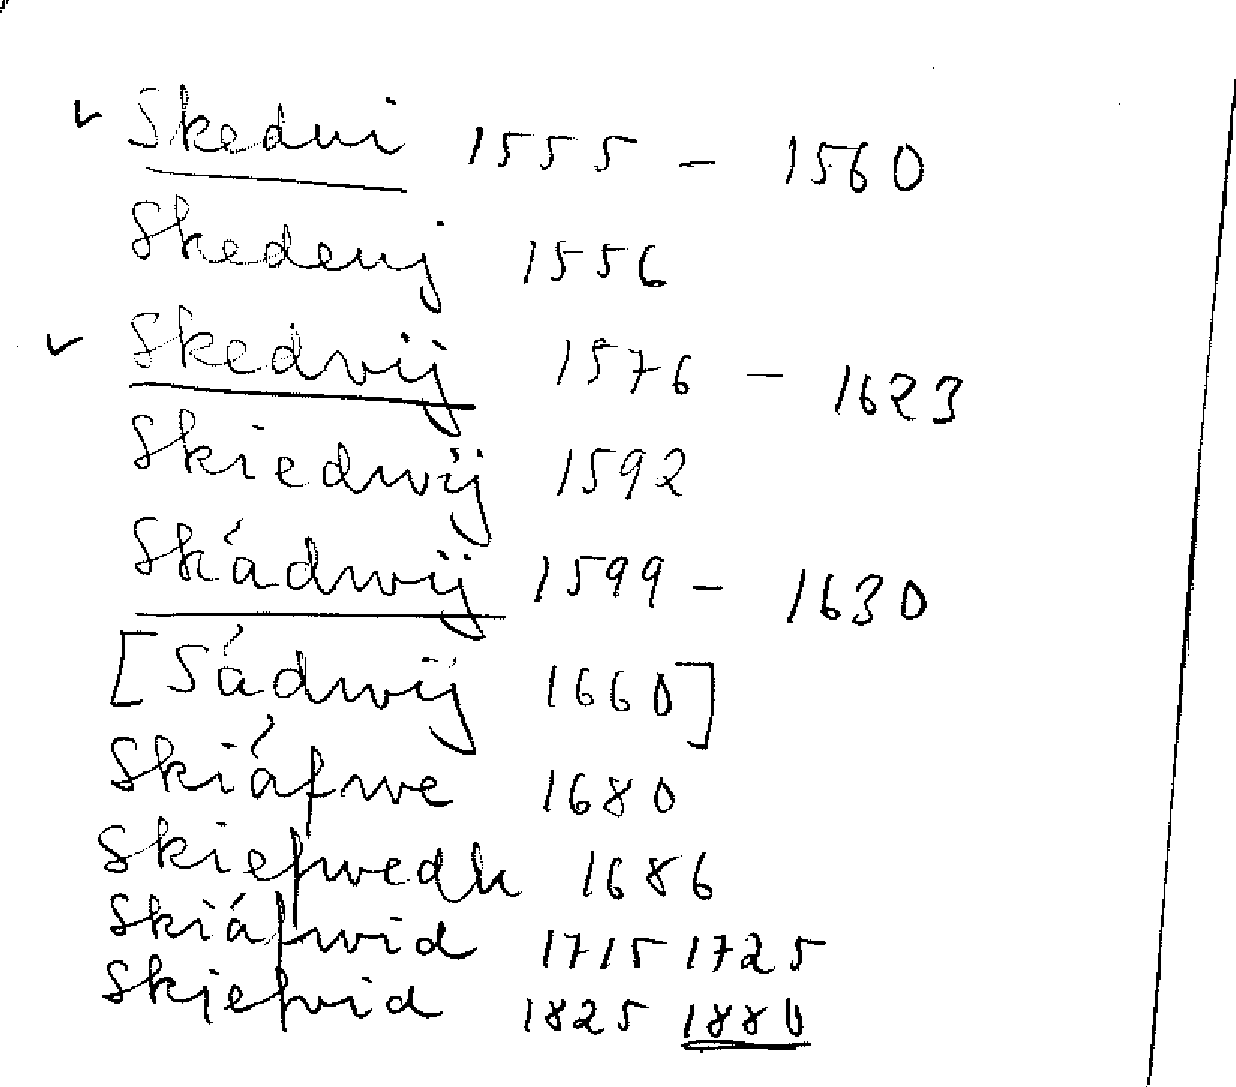 ✓ Skedvi 1555 – 1560
Skedevij 1556
✓ Skedvij 1576 – 1623
Skiedwij 1592
Skádwij 1599 – 1630
[Sádwij 1660]
Skiáfwe 1680
Skiefwedh 1686
Skiáfwid 1715 1725
Skjefvid 1825 1880